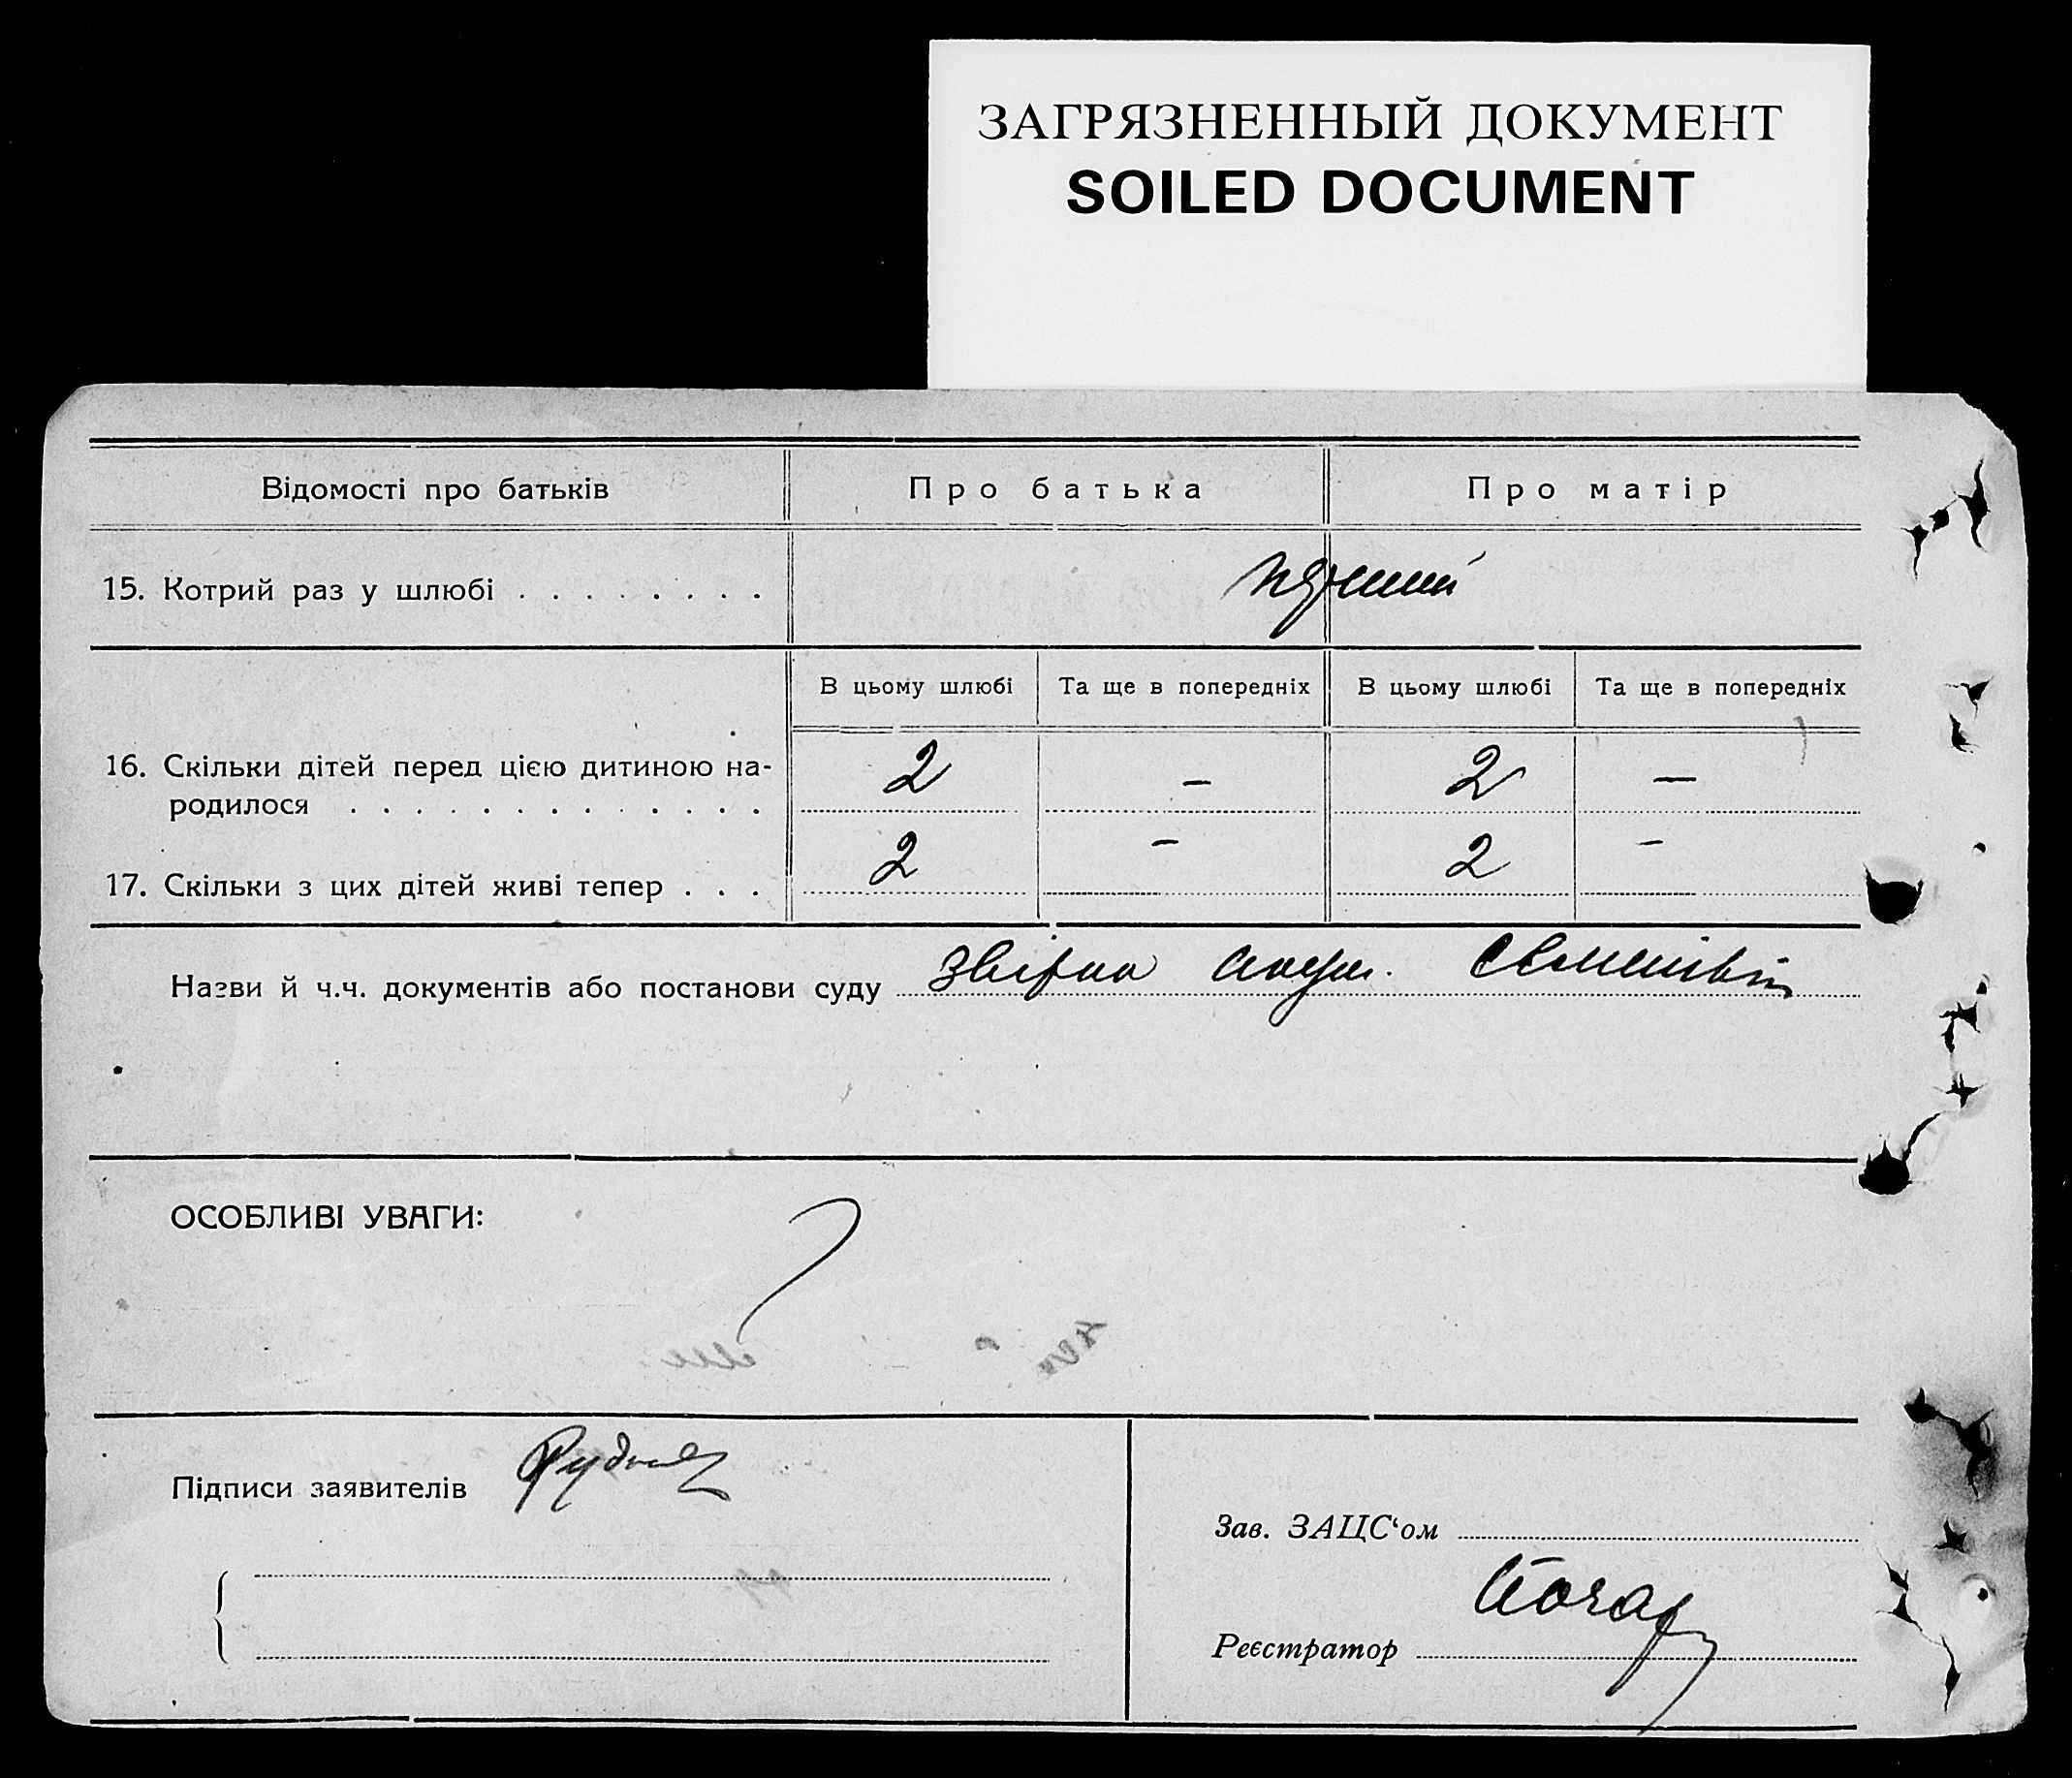 ЗАГРЯЗНЕННЫЙ ДОКУМЕНТ
SOILED DOCUMENT
Відомості про батьків Про батька Про матір
15. Котрий раз у шлюбі . . . . . . . .
В цьому шлюбі Та ще в попередніх В цьому шлюбі Та ще в попередніх
16. Скільки дітей перед цією дитиною на-
родилося . . . . . . . . . . . . . 2 – 2 –
17. Скільки з цих дітей живі тепер . . . 2 – 2 –
Назви й ч.ч. документів або постанови суду
ОСОБЛИВІ УВАГИ:
Підписи заявителів
Зав. ЗАЦС‘ом
Реєстратор